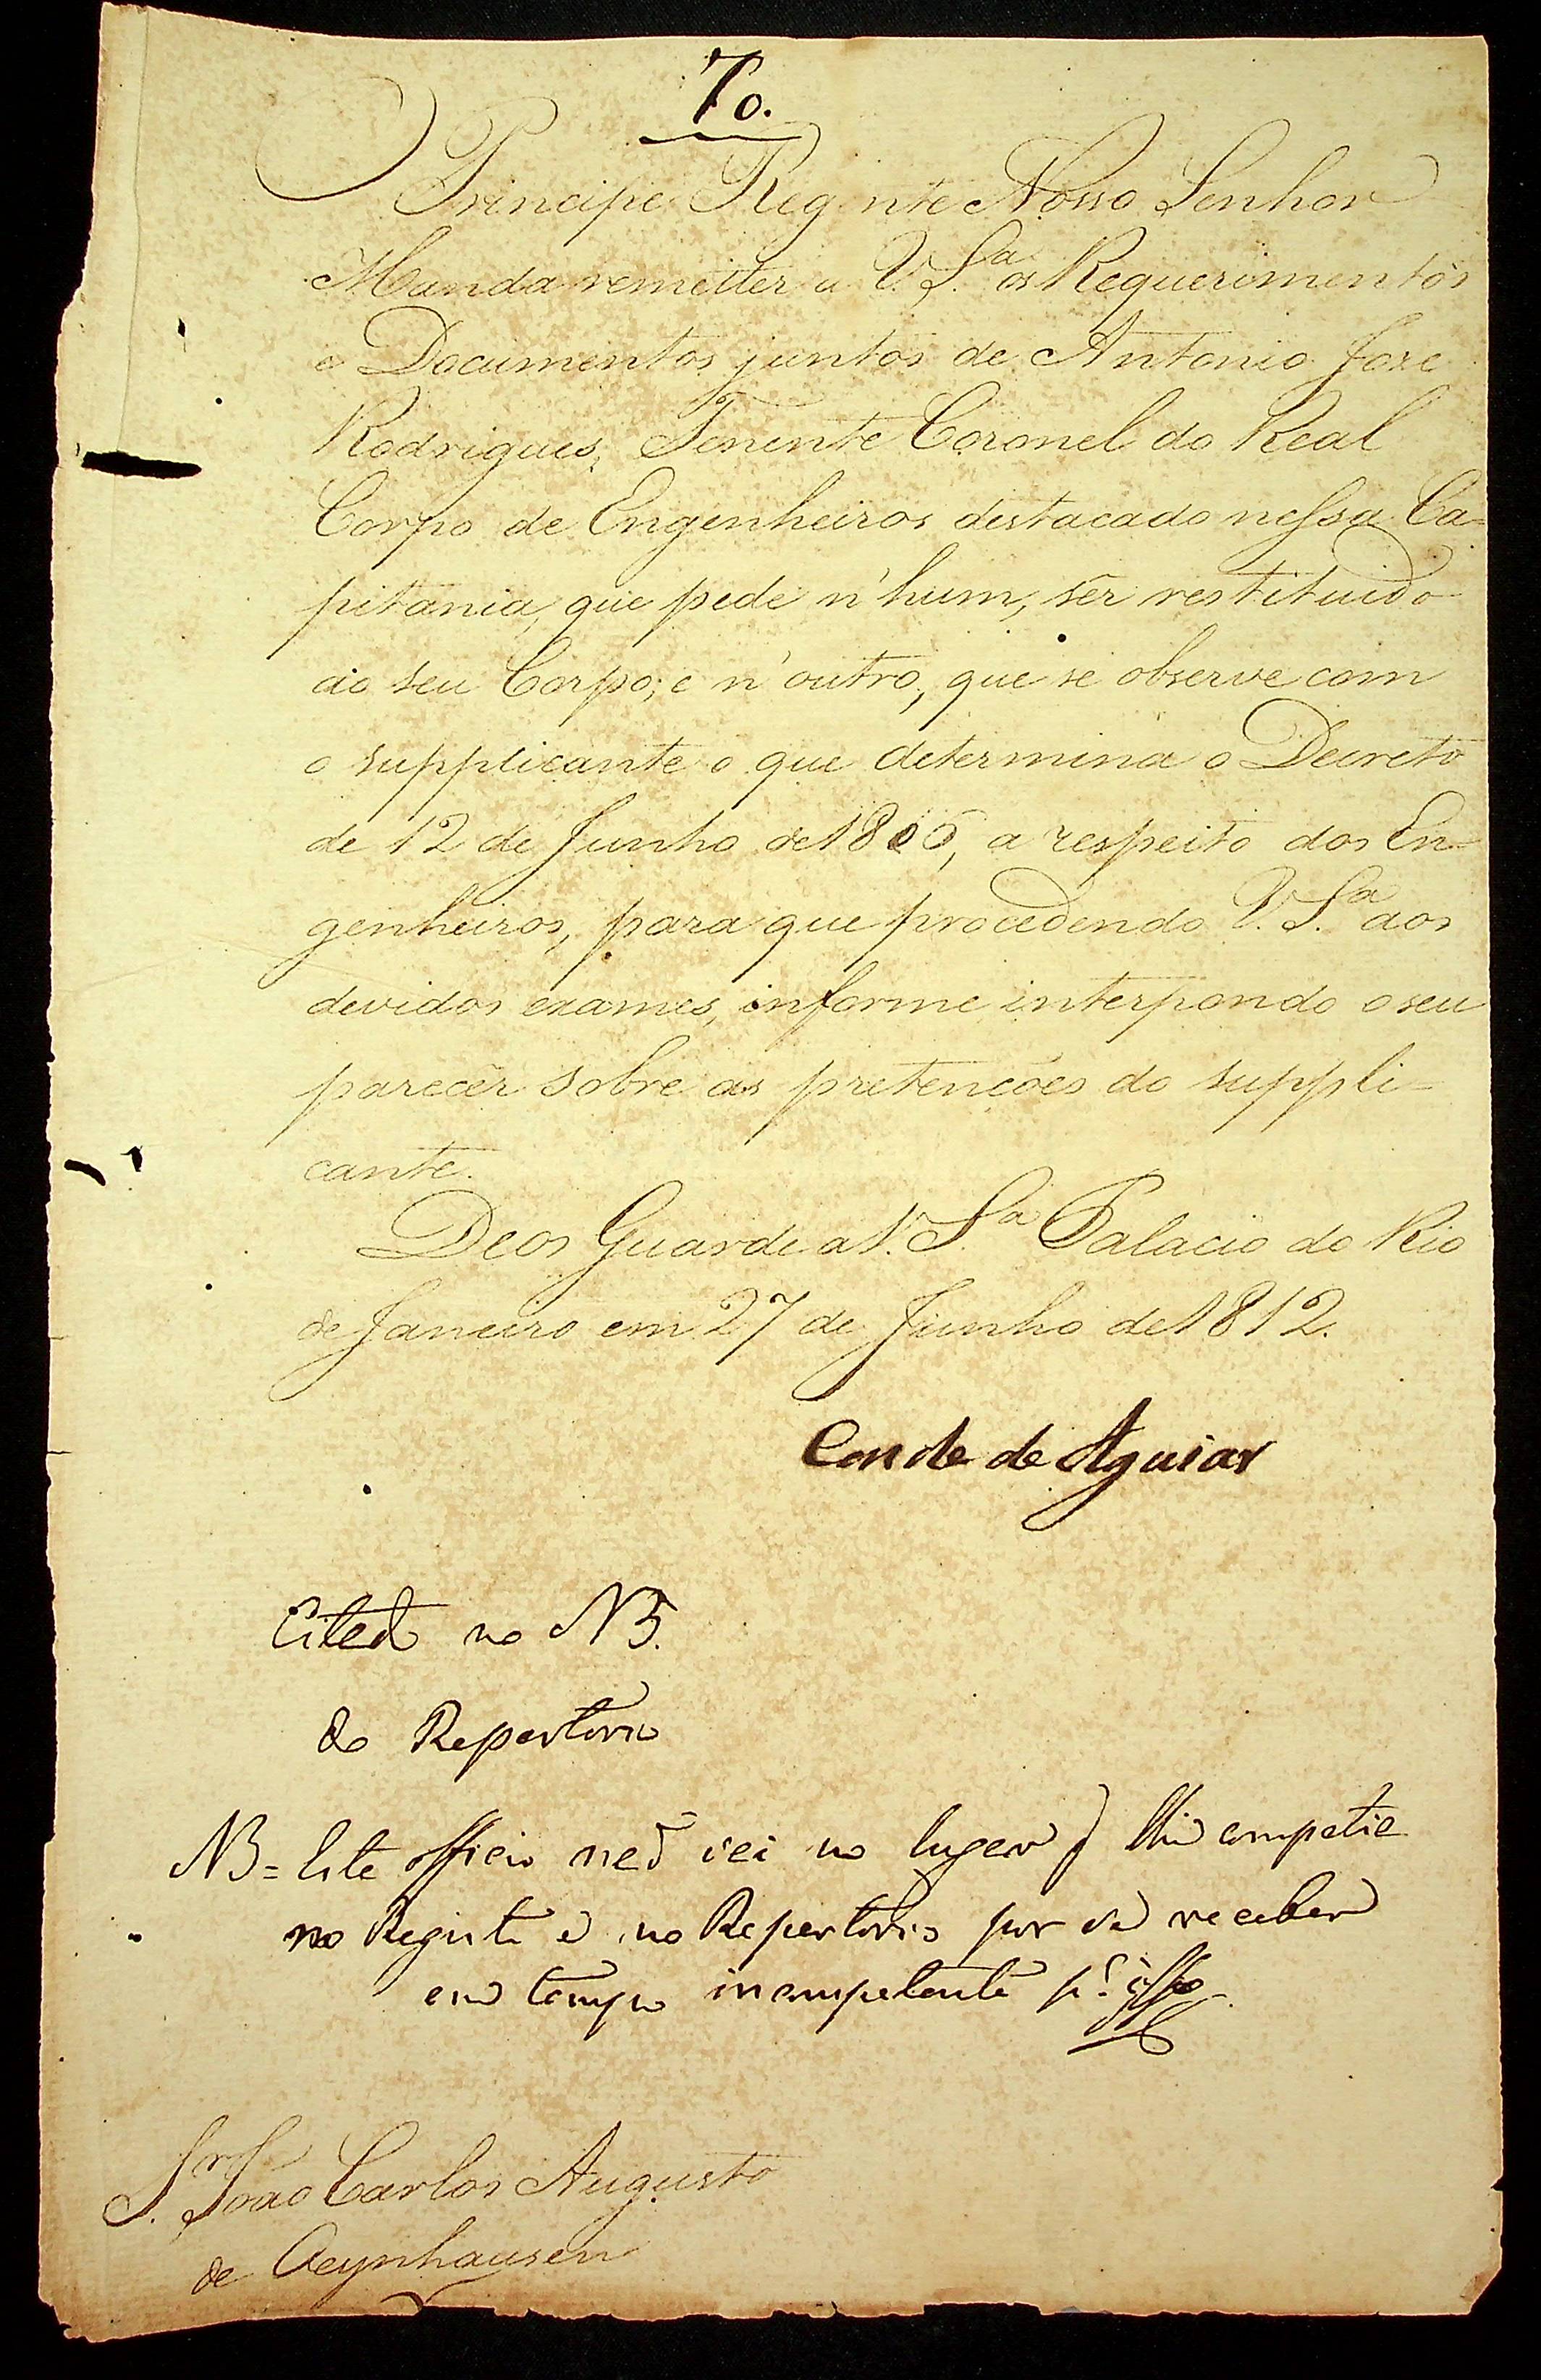 70.
O Principe Regente Nosso Senhor
Manda remetter a V. S.ª os Requerimentos
e Documentos juntos de Antonio Joze
Rodrigues, Tenente Coronel do Real
Corpo de Engenheiros destacado nessa Ca=
pitania, que pede n'hum, ser restituido
ao seu Corpo; e n'outro, que se observe com
o supplicante o que determina o Decreto
de 12 de Junho de 1806, a respeito dos En=
genheiros, para que procedendo V. S.ª aos
devidos exames, informe interpondo o seu
parecer sobre as pretenções do suppli=
cante.
Deos Guarde a V. S.ª Palacio do Rio
de Janeiro em 27 de Junho de 1812.
Conde de Aguiar
Citado no NB.
do Repertorio
NB = Este officio não vai no lugar q lhe competia
no Registo e no Repertorio por se receber
em tempo incompetente p.ª isso
S.r João Carlos Augusto
de Oeynhausen